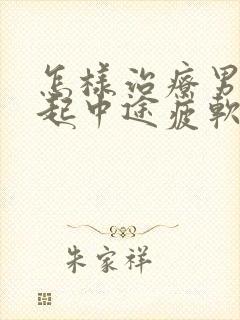 怎樣治療男
起中途疲軟
朱家祥